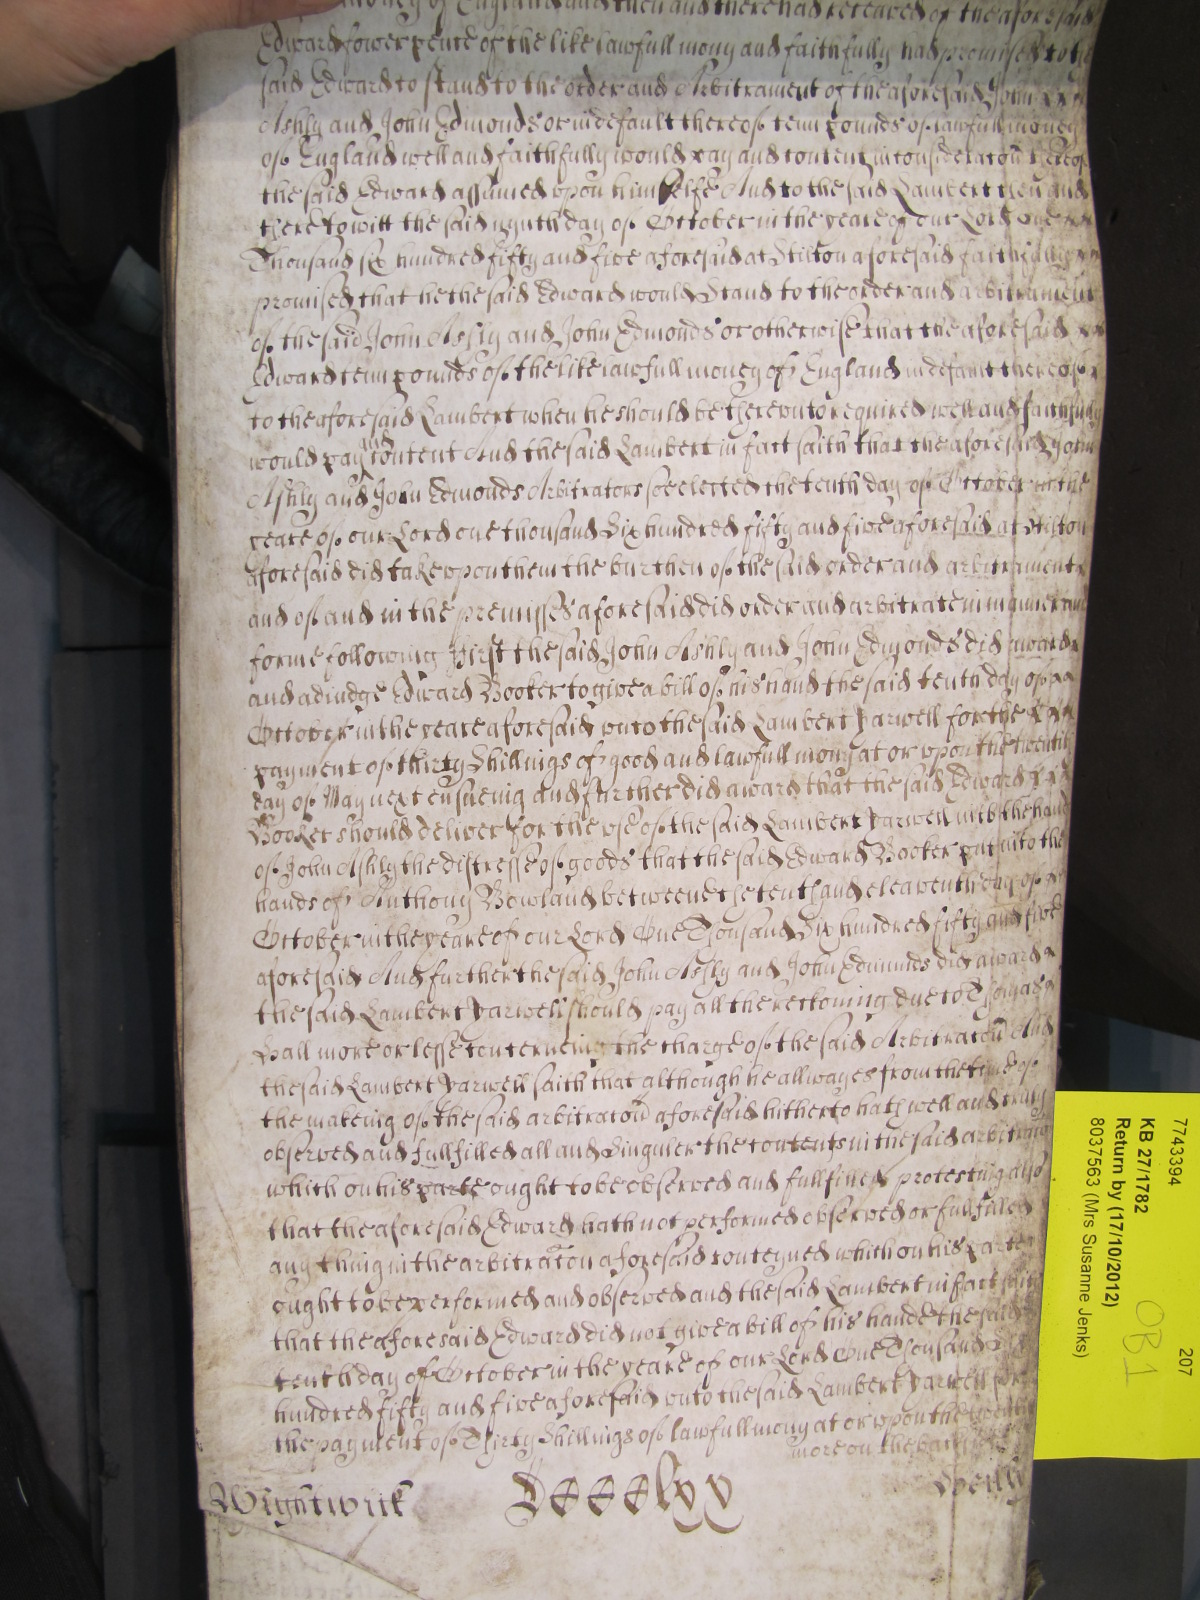 money of England and then and there had receaved of the aforesaid
Edward fower pence of the like lawfull mony and faithfully had promised to the
said Edward to stand to the order and Arbitrament of the aforesaid John
Ashly and John Edmonds or in default thereof tenn pounds of lawfull money
of England well and faithfully would pay and content in consideracon thereof
the said Edward assumed upon himselfe And to the said Lambert then and
there to witt the said nynth day of October in the yeare of our Lord one
Thousand six hundred fifty and five aforesaid at Stilton aforesaid faithfully
promised that he the said Edward would Stand to the order and arbitrament
of the said John Ashly and John Edmonds or otherwise that the aforesaid
Edward tenn pounds of the like lawfull money of England in default thereof
to the aforesaid Lambert when he should be therevnto required well and faithfully
would pay and content And the said Lambert in fact saith that the aforesaid John
Ashly and John Edmonds Arbitrators soe elected the tenth day of October in the
yeare of our Lord one thousand Six hundred fifty and five aforesaid at Stilton
aforesaid did take vpon them the burthen of the said order and arbitrament
and of and in the premisses aforesaid did order and arbitrate in manner and
forme following First the said John Ashly and John Edmonds did award
and adiudge Edward Booker to give a bill of his hand the said tenth day of
October in the yeare aforesaid vnto the said Lambert Yarwell for the
payment of thirty Shillings of good and lawfull mony at or vpon the twentith
day of May next ensueing and further did award that the said Edward
Booker should deliver for the vse of the said Lambert Yarwell into the hand
of John Ashly the distresse of goods that the said Edward Booker put into the
hands of Anthony Bowland betweene the tenth and eleaventh day of
October in the yeare of our Lord One Thousand Six hundred fifty and five
aforesaid And further the said John Ashly and John Edmunds did award
the said Lambert Yarwell should pay all the reckoning due to Thomas
Hall more or lesse concerneing the charge of the said Arbitracon And
the said Lambert Yarwell saith that although he allwayes from the time of
the makeing of the said arbitracon aforesaid hitherto hath well and truly
observed and fullfilled all and Singuler the contents in the said arbitracon
which on his parte ought to be observed and fullfilled protesting also
that the aforesaid Edward hath not performed observed or fullfilled
any thing in the arbitracon aforesaid conteyned which on his parte
ought to be performed and observed and the said Lambert in fact saith
that the aforesaid Edward did not give a bill of his hande the said
tenth day of October in the yeare of our Lord One Thousand Six
hundred fifty and five aforesaid vnto the said Lambert Yarwell for
the payment of Thirty Shillings of lawfull mony at or vpon the twentith
more on the backe
Wightwick DCCCClxx
7743394 207
KB 27/1782
Return by (17/10/2012)
8037563 (Mrs Susanne Jenks)
OB1